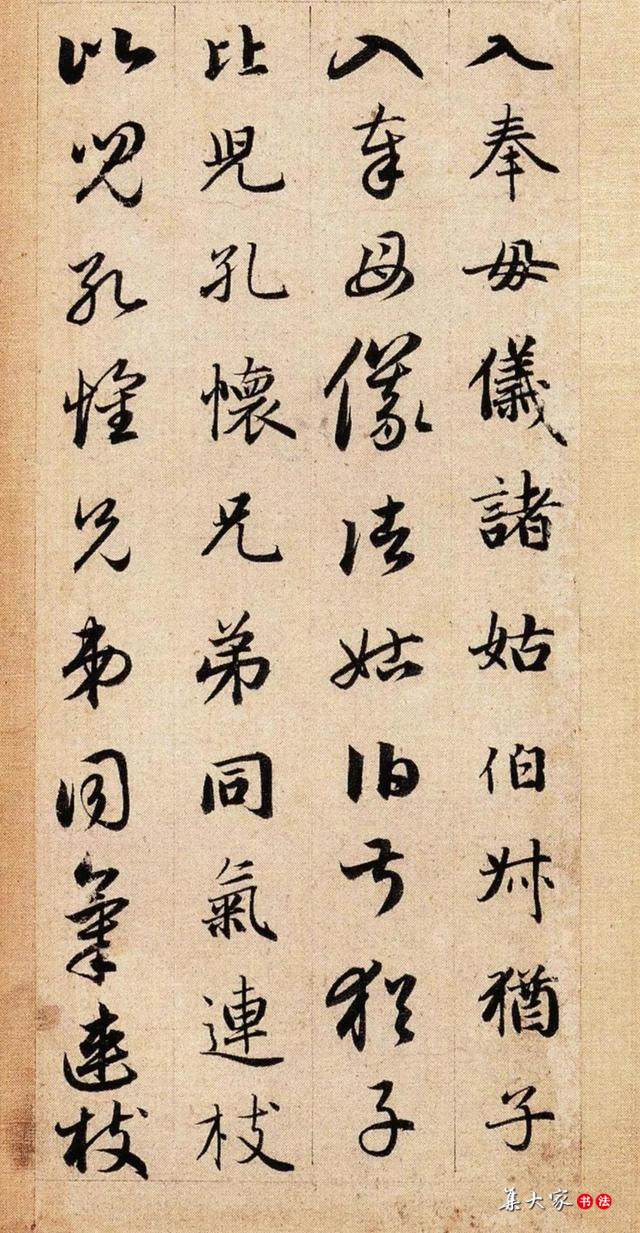 入奉母儀諸姑伯叔猶子
入奉母儀諸姑伯叔猶子
比兒孔懷兄弟同氣連枝
比兒孔懷兄弟同氣連枝
集大家书法